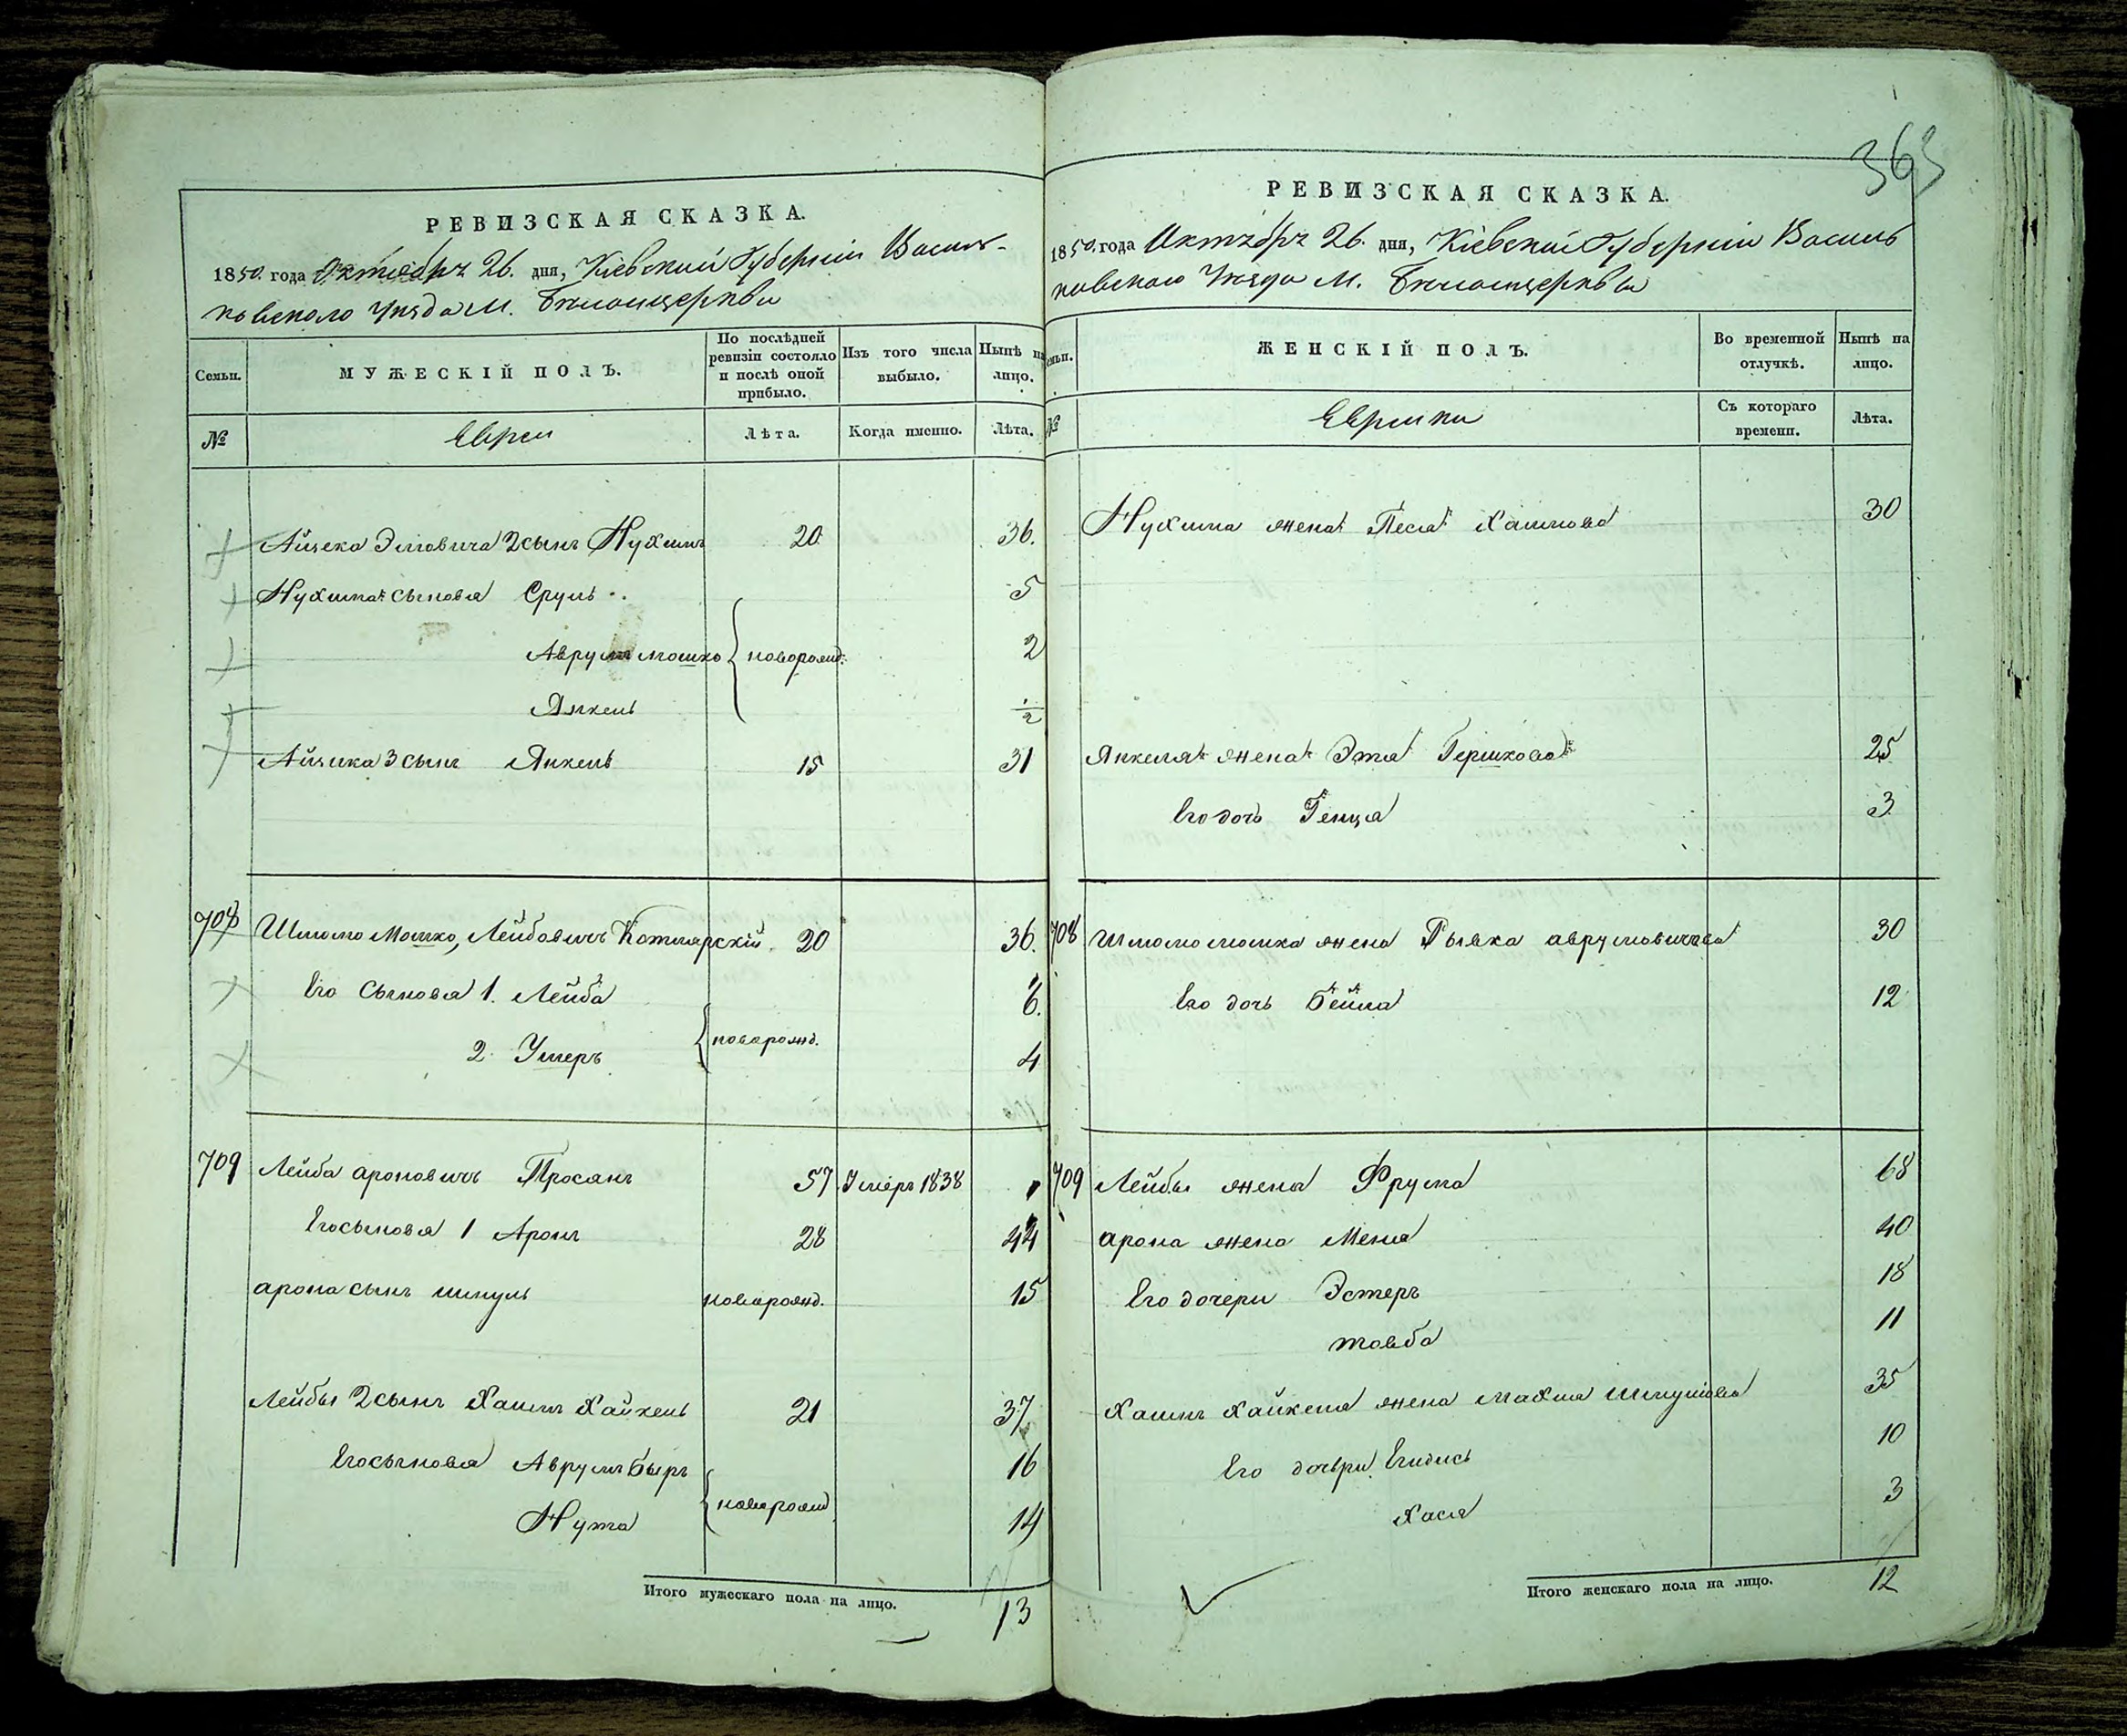 363
РЕВИЗСКАЯ СКАЗКА.
1850. года Октября 26. дня, Кіевской Губерніи Василь-
ковского Уѣзда М. Бѣлоицеркви
Семьи. МУЖЕСКІЙ ПОЛЪ. По послѣдней ревизіи состояло и послѣ оной прибыло. Изъ того числа выбыло. Нынѣ на лицо.
№ Евреи Лѣта. Когда именно. Лѣта.
Айзека Элиовича 2 сынъ Нухимъ 20. 36.
Нухима сыновья Сруль 5
Аврумъ мошко новорожд. 2
Янкель 1/2
Айзика 3 сынъ Янкель 15 31
708 Шлиомо Мошко, Лейбовичъ Котлярскій. 20 36.
Его сыновья 1. Лейба 6.
новорожд.
2. Умеръ 4
709 Лейба ароновичъ Просянъ 57. Умеръ 1838
Его сыновья 1 Аронъ 28 44
арона сынъ шмуль новорожд. 15
Лейбы 2 сынъ Хаимъ Хайкель 21 37
Его сыновья Аврумъ Беръ 16
новорожд
Нута 14
Итого мужескаго пола на лицо. 13
РЕВИЗСКАЯ СКАЗКА.
1850. года Октября 26. дня, Кіевской Губерніи Василь
ковского Уѣзда М. Бѣлоицеркви
Семьи. ЖЕНСКІЙ ПОЛЪ. Во временной отлучкѣ. Нынѣ на лицо.
№ Еврейки Съ котораго времени. Лѣта.
Нухима жена Песя Хаимова 30
Янкеля жена Этя Гершкова 25
Его дочь Генця 3
708 Шлиомо мошка жена Рывка аврумовичева 30
Его дочь Бейла 12
709 Лейбы жена Фрума 68
арона жена Меня 40
Его дочери Эстеръ 18
товба 11
Хаимъ Хайкеля жена махля Шмулиова 35
Его дочьри 10
Хася 3
Итого женскаго пола на лицо. 12